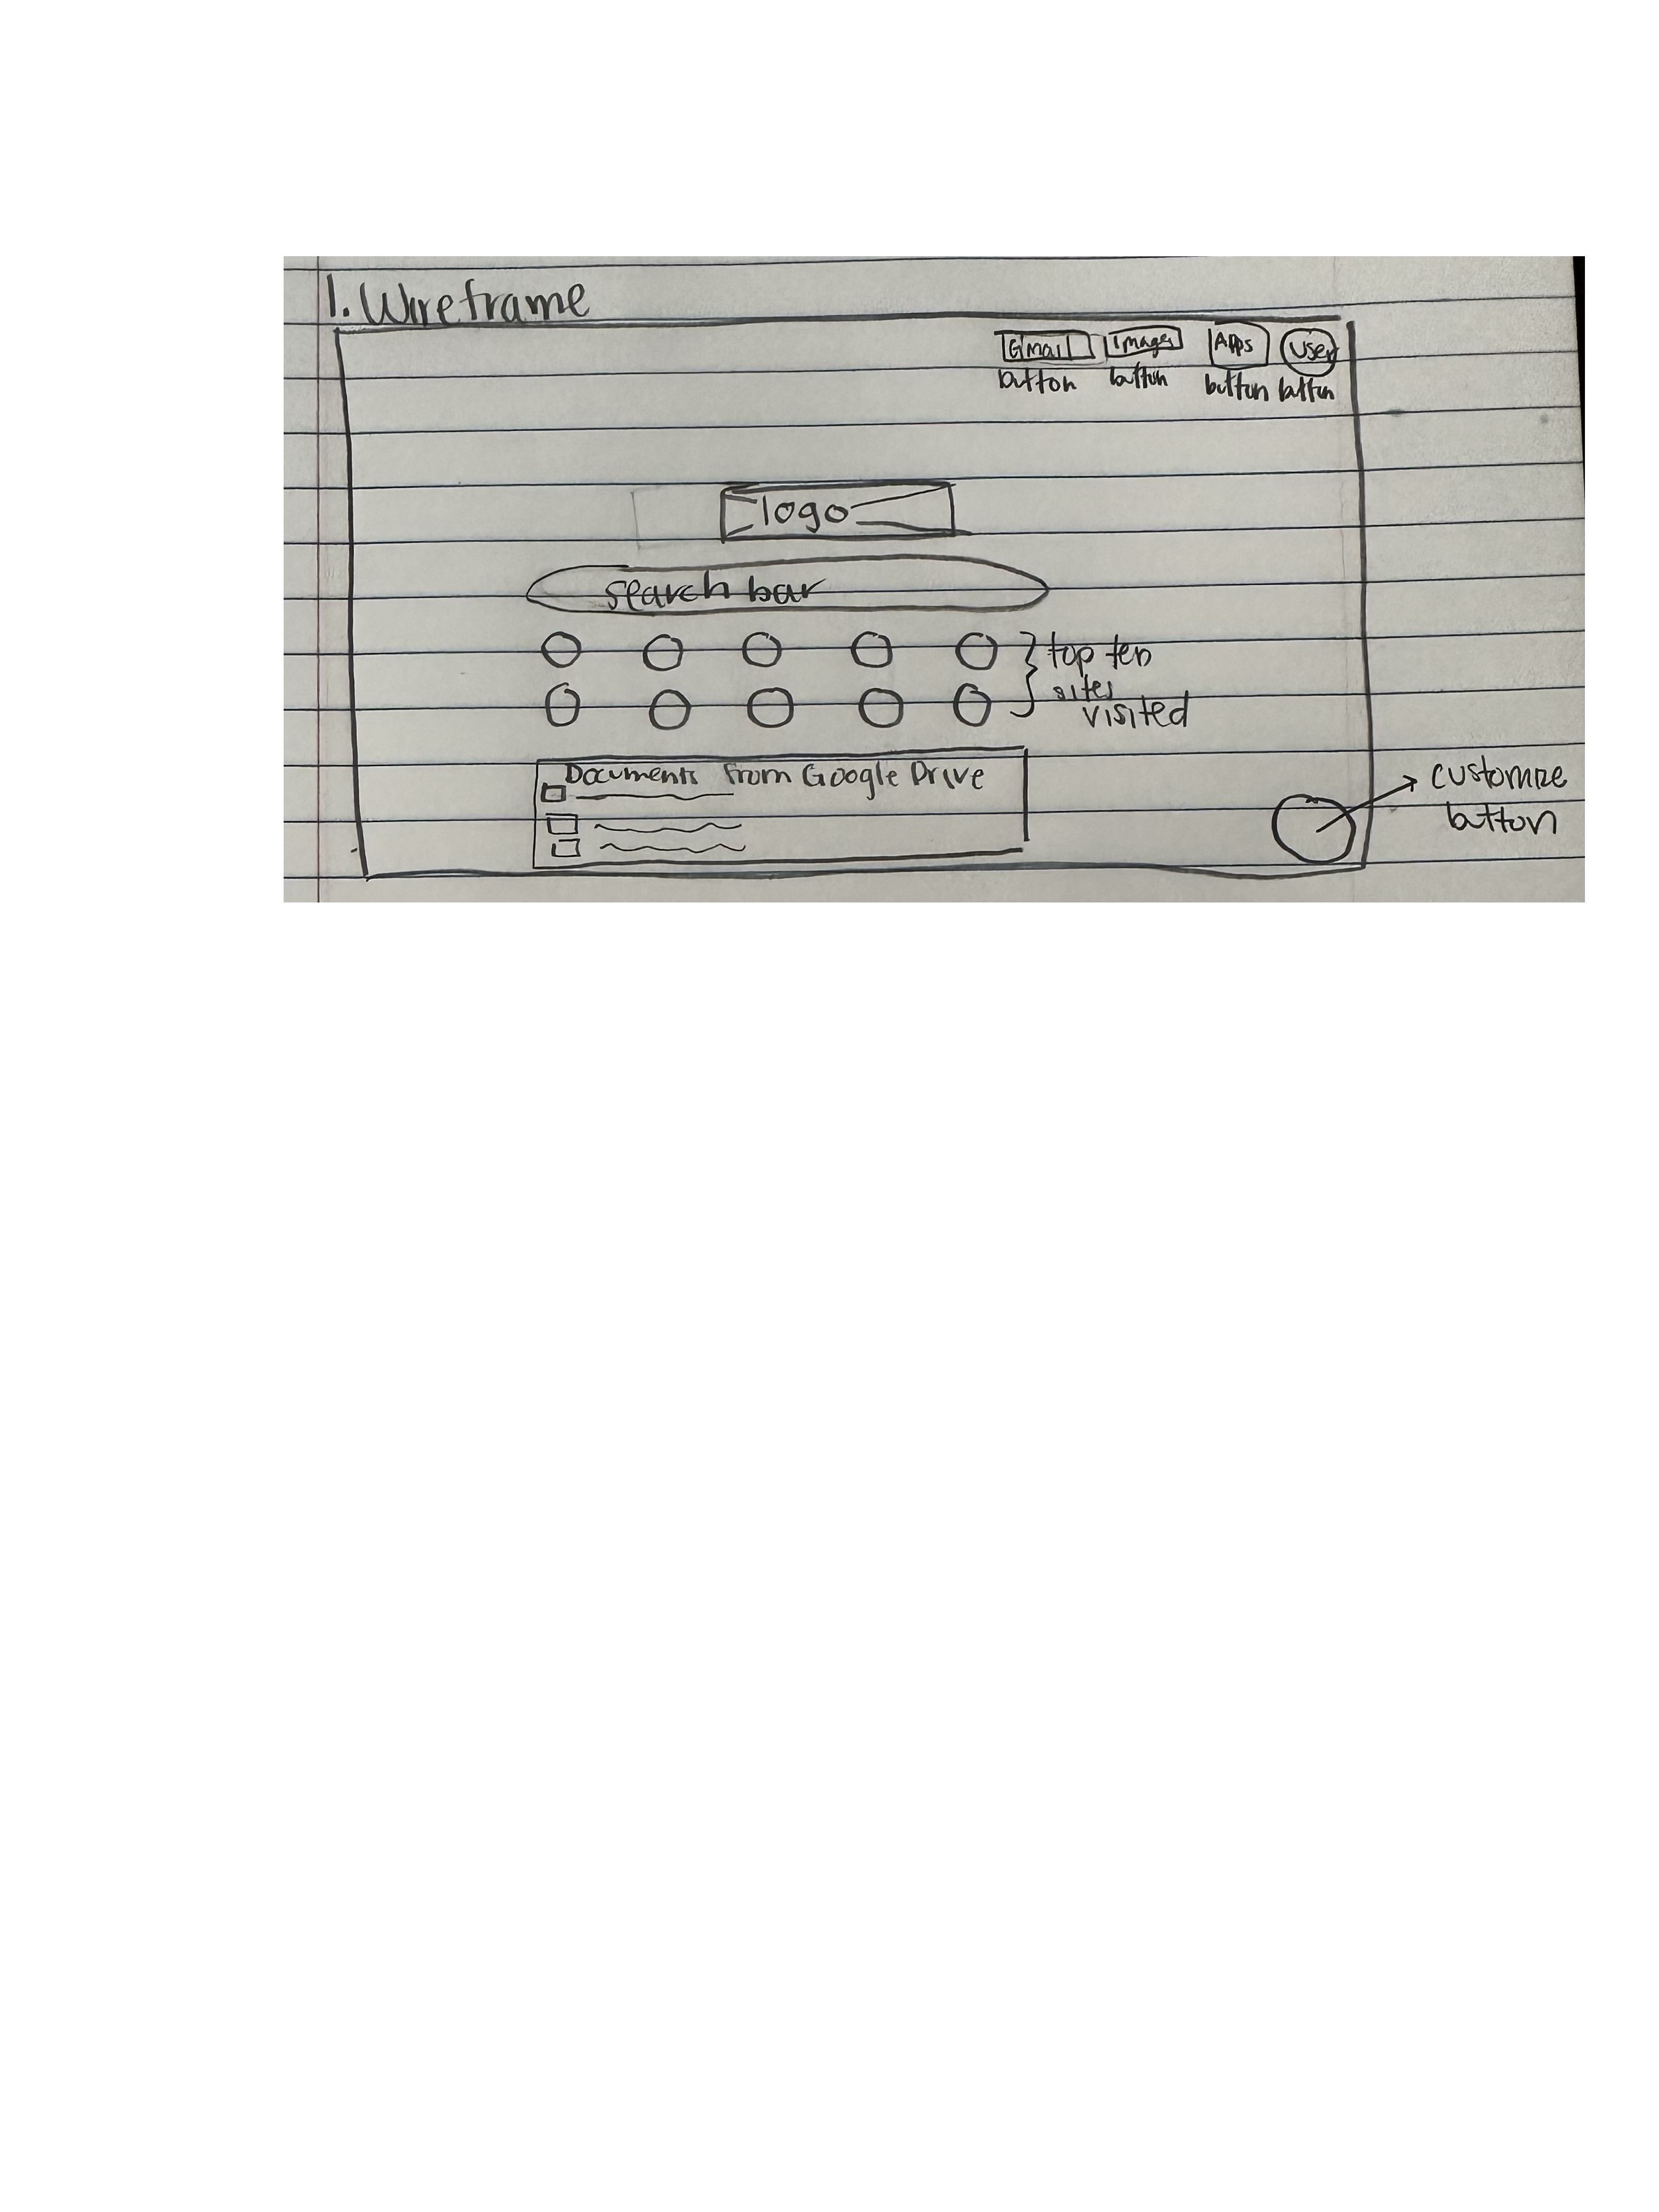 1. Wireframe
Gmail Images Apps User
button button button button
logo
search bar
top ten
sites
visited
Documents from Google Drive
customize
button